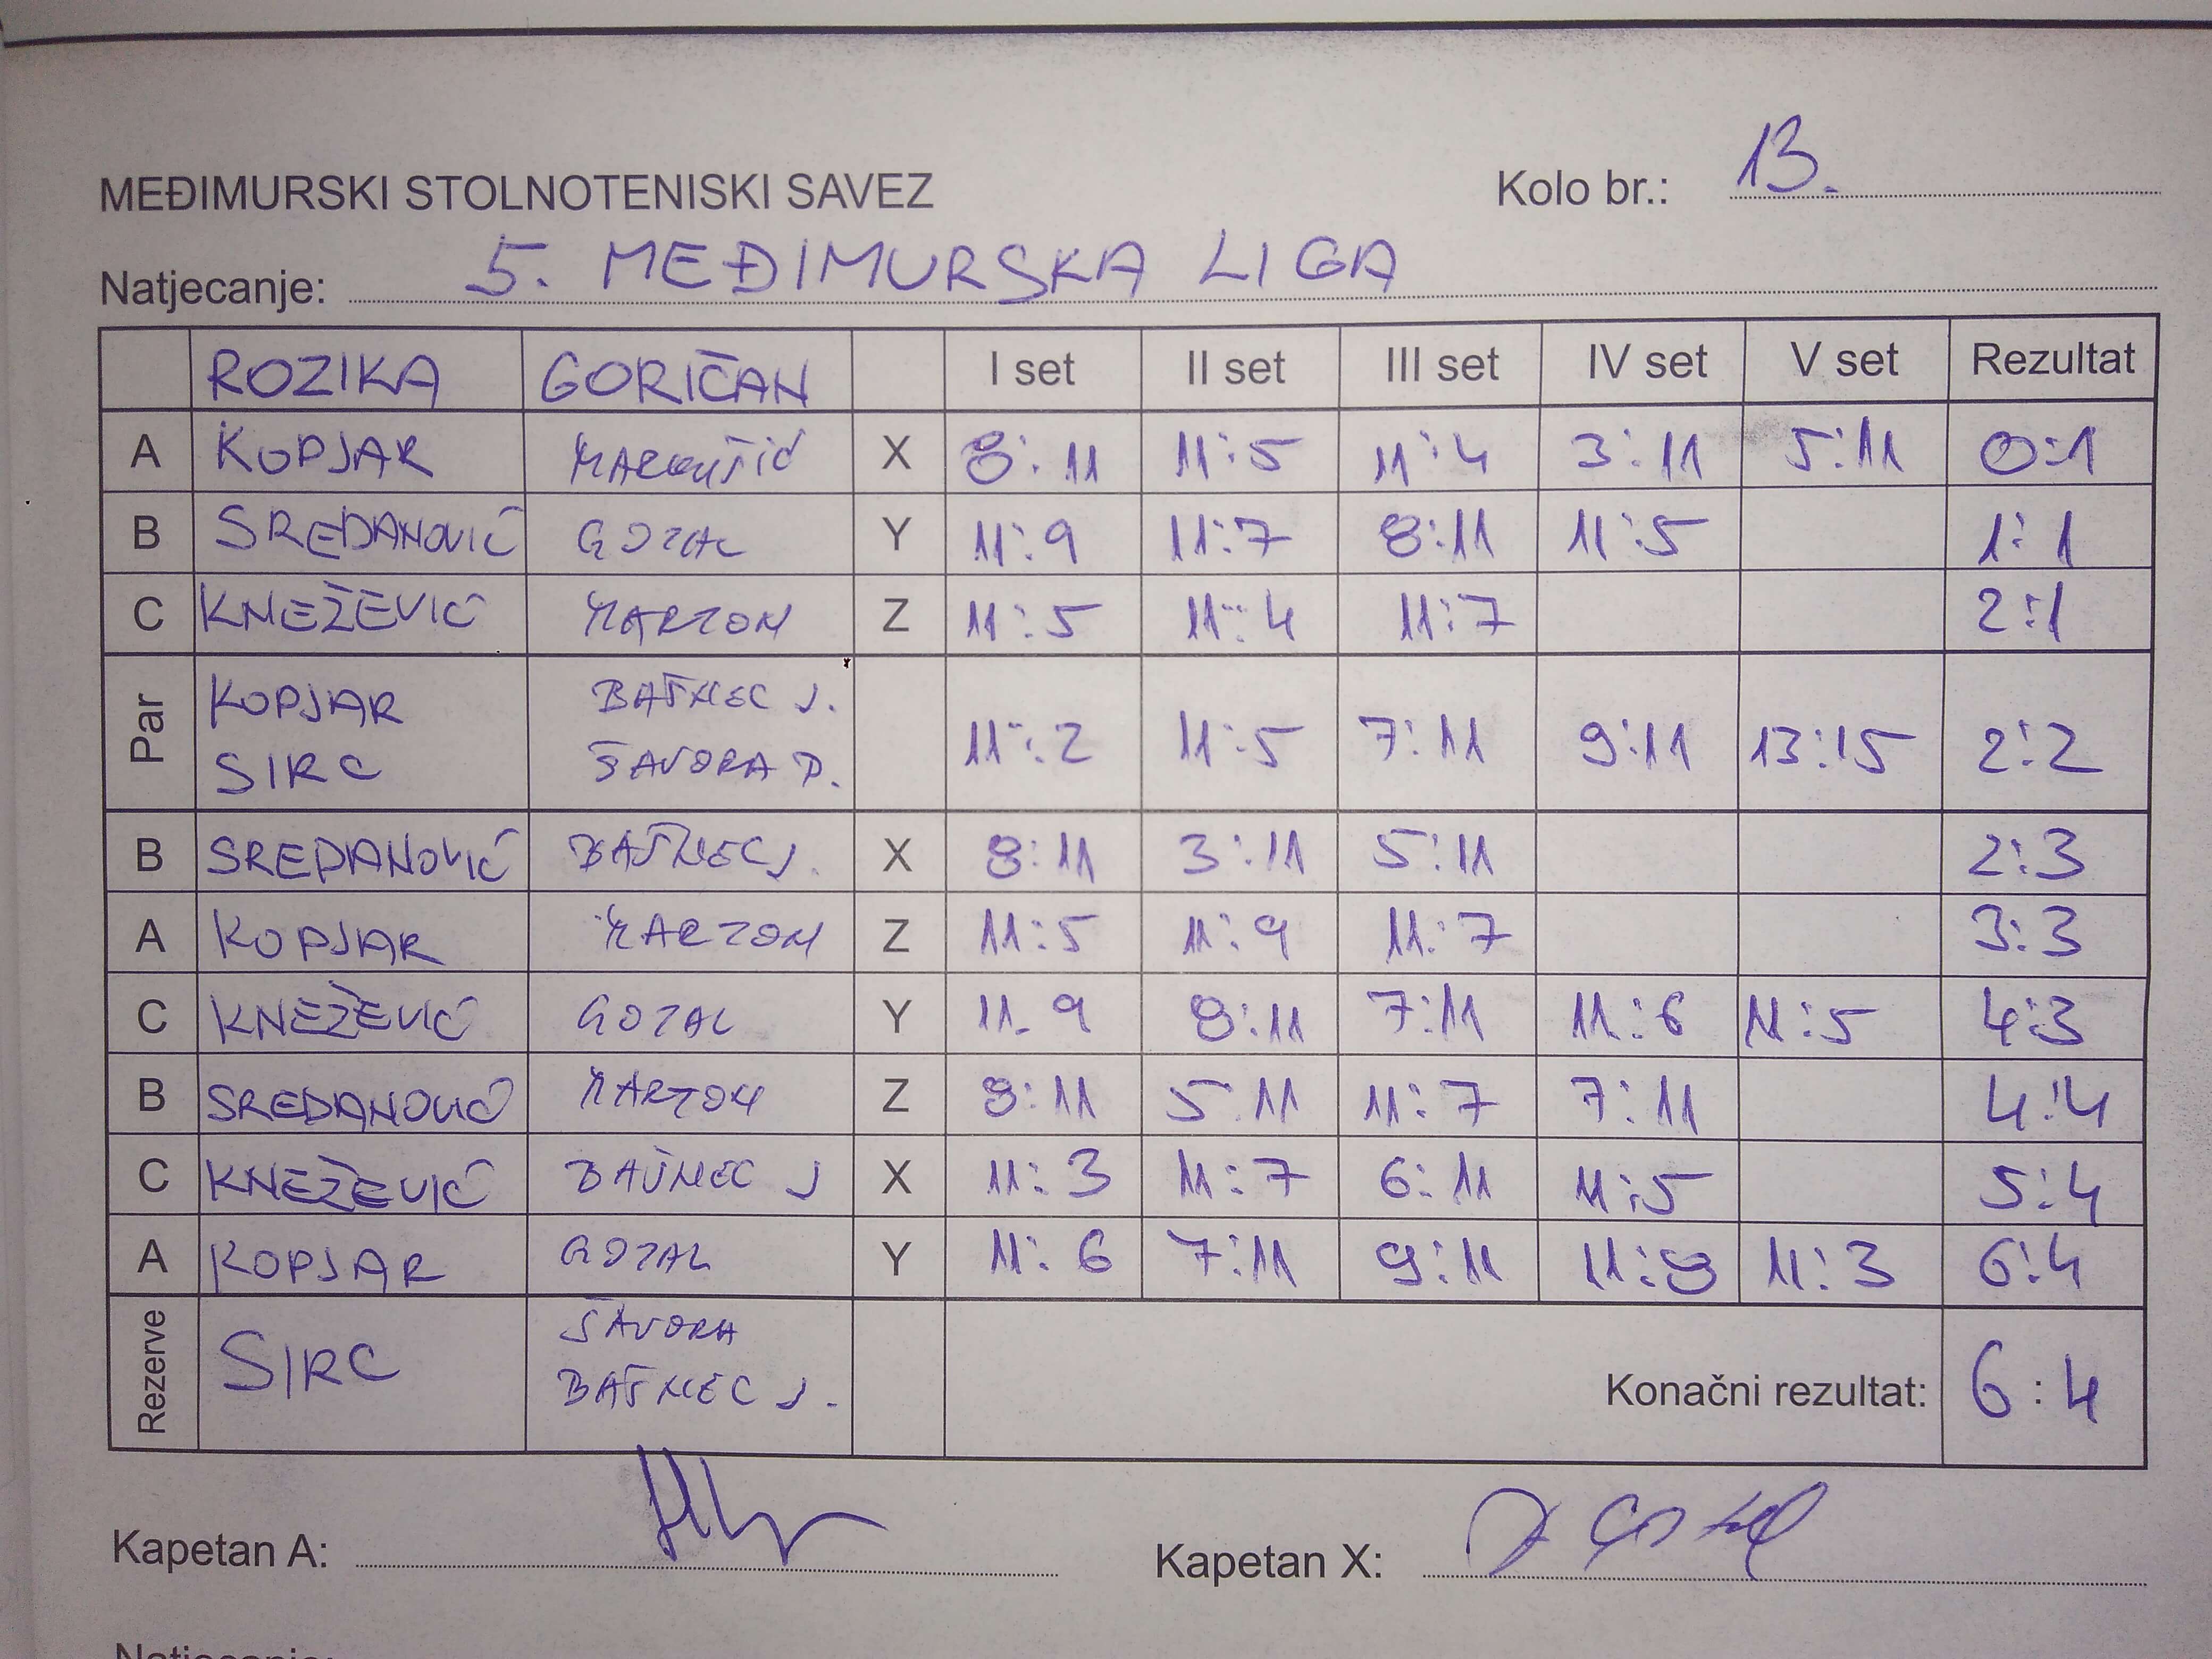 MEĐIMURSKI STOLNOTENISKI SAVEZ Kolo br.: 13.
Natjecanje: 5. MEĐIMURSKA LIGA
ROZIKA GORIČAN I set II set III set IV set V set Rezultat
A KOPJAR MARKUŠIĆ X 8:11 11:5 11:4 3:11 5:11 0:1
B SREDANOVIĆ GOTAL Y 11:9 11:7 8:11 11:5 1:1
C KNEŽEVIĆ MARTON Z 11:5 11:4 11:7 2:1
Par KOPJAR BAŠNEC J.
SIRC ŠAVORA D. 11:2 11:5 7:11 9:11 13:15 2:2
B SREDANOVIĆ BAŠNEC J. X 8:11 3:11 5:11 2:3
A KOPJAR MARTON Z 11:5 11:9 11:7 3:3
C KNEŽEVIĆ GOTAL Y 11-9 8:11 7:11 11:6 11:5 4:3
B SREDANOVIĆ MARTON Z 8:11 5:11 11:7 7:11 4:4
C KNEŽEVIĆ BAŠNEC J X 11:3 11:7 6:11 11:5 5:4
A KOPJAR GOTAL Y 11:6 7:11 9:11 11:8 11:3 6:4
Rezerve SIRC ŠAVORA
BAŠNEC J. Konačni rezultat: 6:4
Kapetan A: Kapetan X: